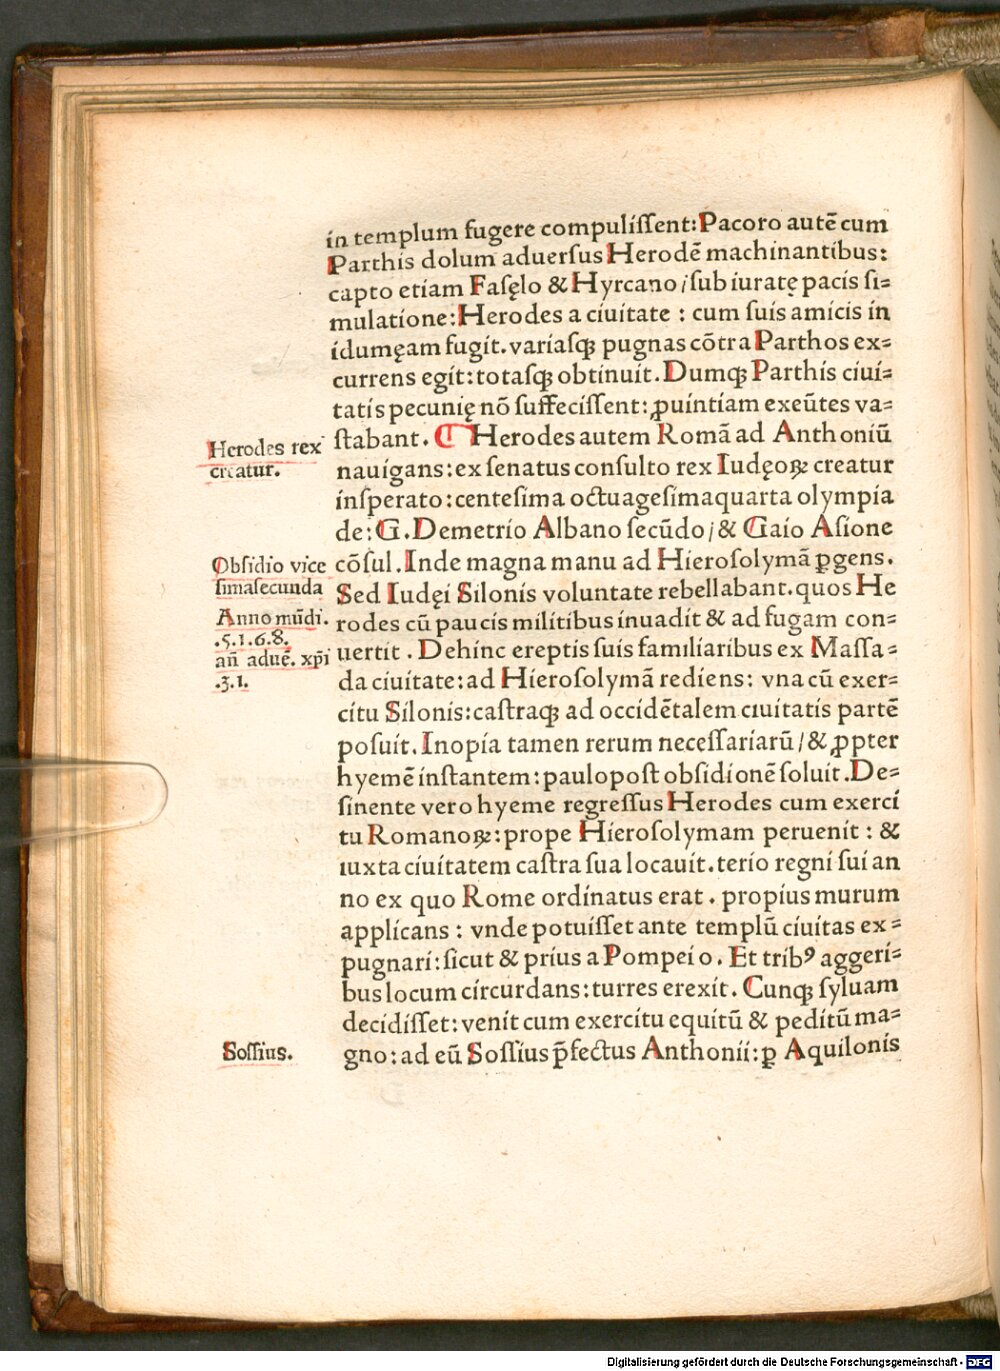 in templum fugere compuliſſent:Pacoro autē cum
Parthis dolum aduerſus Herodē machinantibus:
capto etiam Faſęlo & Hyrcano/ſub iuratę pacis ſi=
mulatione:Herodes a ciuitate : cum ſuis amicis in
idumęam fugit.variaſqꝫ pugnas cōtra Parthos ex=
currens egit:totaſqꝫ obtinuit.Dumqꝫ Parthis ciui=
tatis pecunię nō ſuffeciſſent:ꝓuintiam exeūtes va=
ſtabant. ¶ Herodes autem Romā ad Anthoniū
nauigans:ex ſenatus conſulto rex Iudęoꝝ creatur
inſperato:centeſima octuageſimaquarta olympia
de:G.Demetrio Albano ſecūdo/& Gaio Aſione
cōſul.Inde magna manu ad Hieroſolymā ꝑgens.
Sed Iudęi Silonis voluntate rebellabant.quos He
rodes cū paucis militibus inuadit & ad fugam con=
uertit . Dehinc ereptis ſuis familiaribus ex Maſſa=
da ciuitate:ad Hieroſolymā rediens: vna cū exer=
citu Silonis:caſtraqꝫ ad occidētalem ciuitatis partē
poſuit.Inopia tamen rerum neceſſariarū/& ꝓpter
hyemē inſtantem:paulopoſt obſidionē ſoluit.De=
ſinente vero hyeme regreſſus Herodes cum exerci
tu Romanoꝝ:prope Hieroſolymam peruenit : &
iuxta ciuitatem caſtra ſua locauit.terio regni ſui an
no ex quo Rome ordinatus erat . propius murum
applicans : vnde potuiſſet ante templū ciuitas ex=
pugnari:ſicut & prius a Pompeio. Et tribꝰ aggeri=
bus locum circurdans:turres erexit. Cunqꝫ ſyluam
decidiſſet:venit cum exercitu equitū & peditū ma=
gno:ad eū Soſſius p̄fectus Anthonii:ꝑ Aquilonis
Herodes rex
creatur.
Obſidio vice
ſimaſecunda
Anno mūdi.
.5.1.6.8.
an̄ aduē. xp̄i
.3.1.
Soſſius.
Digitalisierung gefördert durch die Deutsche Forschungsgemeinschaft - DFG